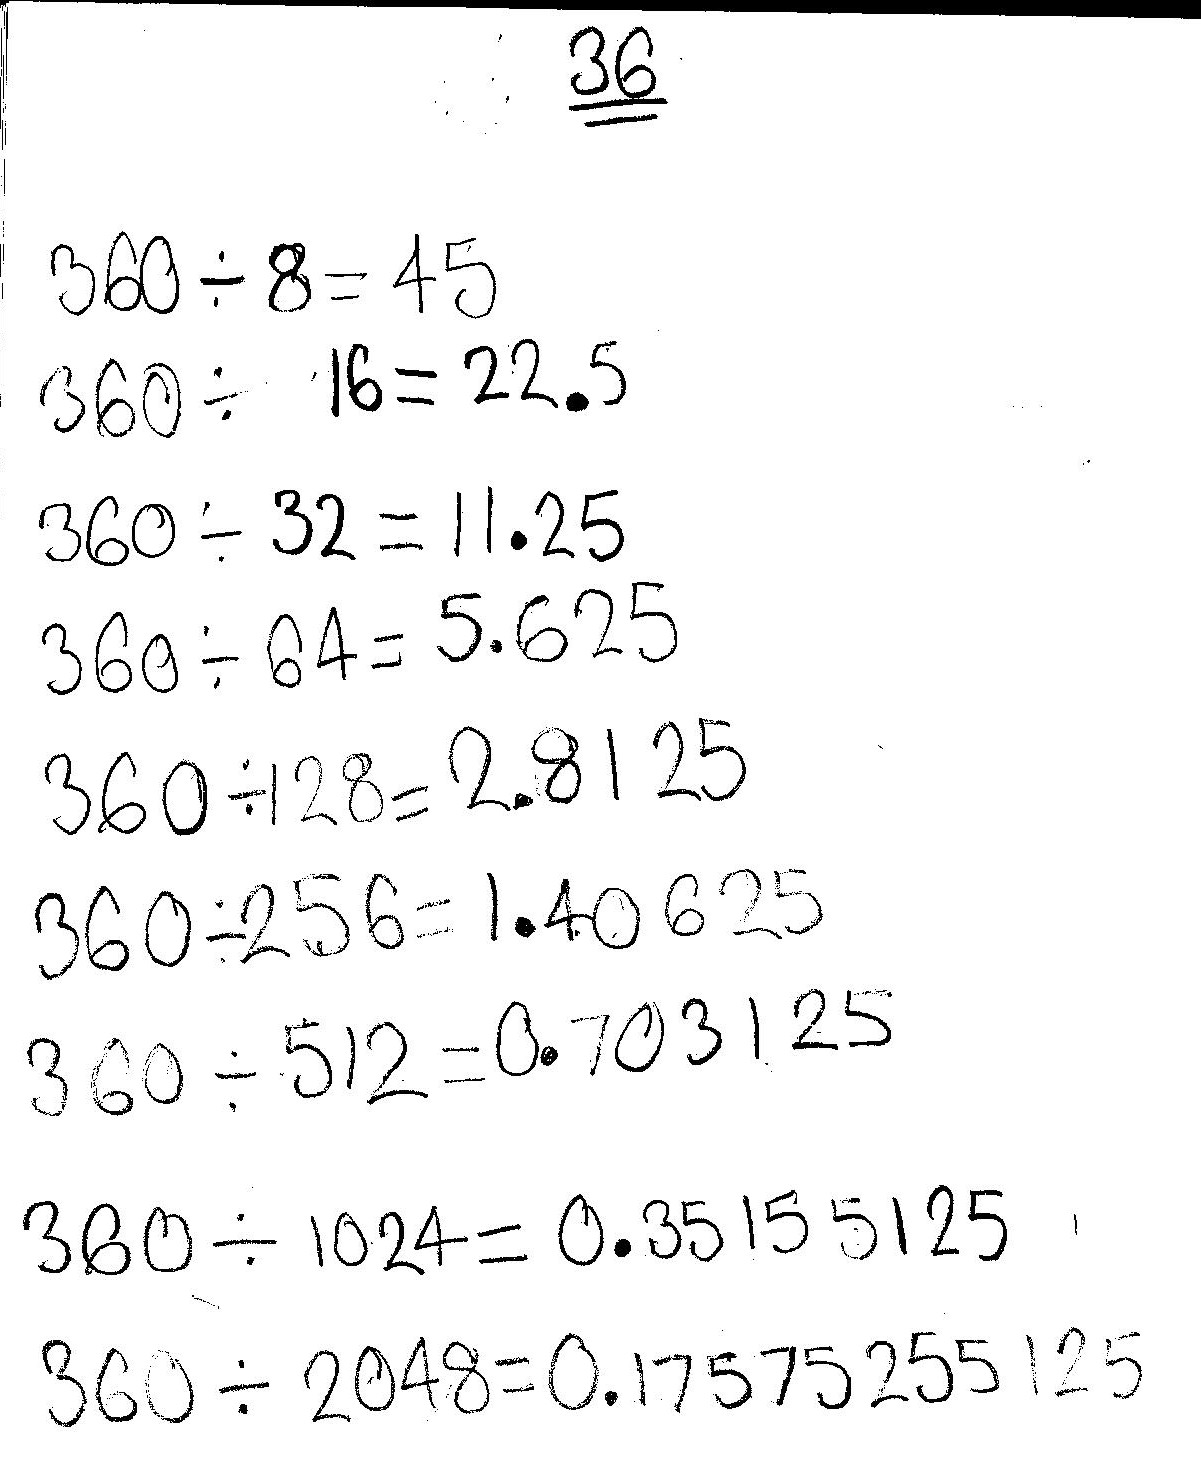 36
360 ÷ 8 = 45
360 ÷ 16 = 22.5
360 ÷ 32 = 11.25
360 ÷ 64 = 5.625
360 ÷ 128 = 2.8125
360 ÷ 256 = 1.40625
360 ÷ 512 = 0.703125
360 ÷ 1024 = 0.35155125
360 ÷ 2048 = 0.17575255125